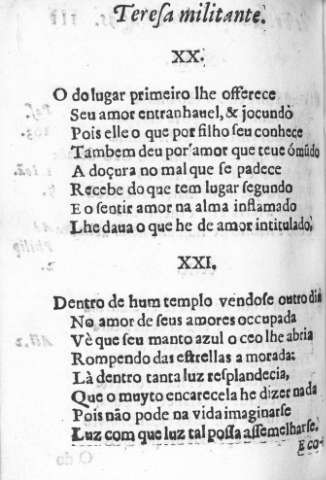 Teresa militante.
XX.
O do lugar primeiro lhe offerece
Seu amor entranhauel, & jocundo
Pois elle o que por filho seu conhece
Tambem deu por amor que teue ó mũdo
A doçura no mal que se padece
Recebe do que tem lugar segundo
E o sentir amor na alma inflamado
Lhe daua o que he de amor intitulado,
XXI.
Dentro de hum templo vendose outro dia
No amor de seus amores occupada
Vè que seu manto azul o ceo lhe abria
Rompendo das estrellas a morada:
Là dentro tanta luz resplandecia,
Que o muyto encarecela he dizer nada
Pois não pode na vida imaginarse
Luz com que luz tal possa assemelharse.
E co-